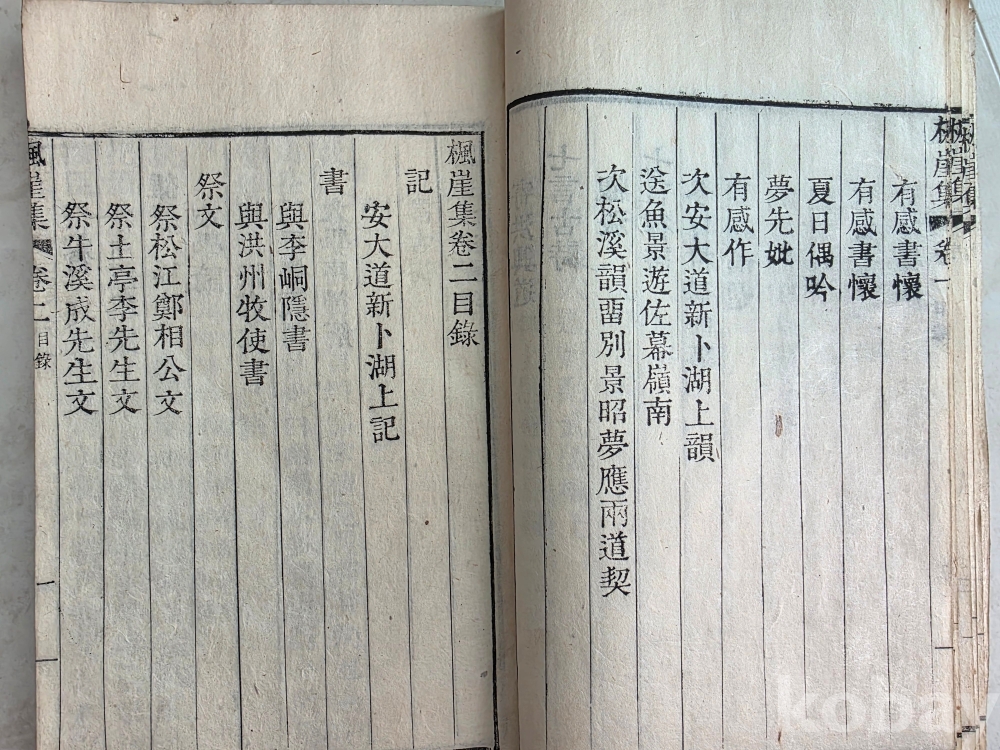 有感書懷
有感書懷
夏日偶吟
夢先妣
有感作
次安大道新卜湖上韻
送魚景遊佐幕嶺南
次松溪韻畱別景昭夢應兩道契
楓崖集卷二目錄
記
安大道新卜湖上記
書
與李峒隱書
與洪州牧使書
祭文
祭松江鄭相公文
祭土亭李先生文
祭牛溪成先生文
楓崖集 卷二 目錄 一
kobay